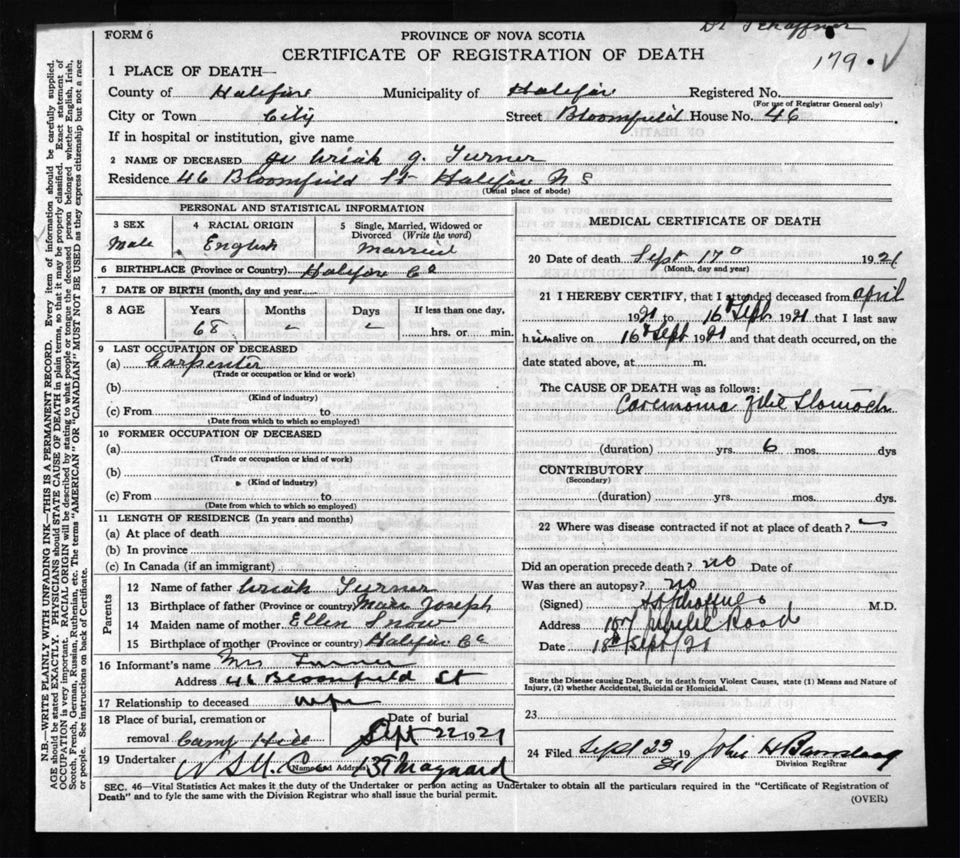 Dr Schaffner
FORM 6
PROVINCE OF NOVA SCOTIA
CERTIFICATE OF REGISTRATION OF DEATH
179 . √
1 PLACE OF DEATH—
County of Halifax Municipality of Halifax Registered No.
(For use of Registrar General only)
City or Town City Street Bloomfield House No. 46
If in hospital or institution, give name
2 NAME OF DECEASED Uriah J. Turner
Residence 46 Bloomfield St Halifax N S
(Usual place of abode)
PERSONAL AND STATISTICAL INFORMATION
3 SEX
Male
4 RACIAL ORIGIN
English
5 Single, Married, Widowed or Divorced (Write the word)
Married
6 BIRTHPLACE (Province or Country) Halifax Co
7 DATE OF BIRTH (month, day and year
8 AGE Years Months Days If less than one day,
68 hrs. or min.
9 LAST OCCUPATION OF DECEASED
(a) Carpenter
(Trade or occupation or kind or work)
(b)
(Kind of industry)
(c) From to
(Date from which to which so employed)
10 FORMER OCCUPATION OF DECEASED
(a)
(Trade or occupation or kind of work)
(b)
(Kind of industry)
(c) From to
(Date from which to which so employed)
11 LENGTH OF RESIDENCE (In years and months)
(a) At place of death
(b) In province
(c) In Canada (if an immigrant)
Parents
12 Name of father Uriah Turner
13 Birthplace of father (Province or country) Marr Joseph
14 Maiden name of mother Ellen Snow
15 Birthplace of mother (Province or country) Halifax Co
16 Informant's name Mrs Turner
Address 46 Bloomfield St
17 Relationship to deceased wife
18 Place of burial, cremation or removal Camp Hill
Date of burial
Sept 22 1921
19 Undertaker Co 137 Maynard
(Name and Address)
MEDICAL CERTIFICATE OF DEATH
20 Date of death Sept 17 1921
(Month, day and year)
21 I HEREBY CERTIFY, that I attended deceased from April
1921 to 16 Sept 1921 that I last saw
him alive on 16 Sept 1921 and that death occurred, on the
date stated above, at m.
The CAUSE OF DEATH was as follows:
Carcinoma of the Stomach
(duration) yrs. 6 mos. dys
CONTRIBUTORY
(Secondary)
(duration) yrs. mos. dys.
22 Where was disease contracted if not at place of death?
Did an operation precede death? no Date of
Was there an autopsy? no
(Signed) Schaffner M.D.
Address Road
Date 18 Sept/21
State the Disease causing Death, or in death from Violent Causes, state (1) Means and Nature of
Injury, (2) whether Accidental, Suicidal or Homicidal.
23
24 Filed Sept 23 1921 John H Barnstead
Division Registrar
SEC. 46—Vital Statistics Act makes it the duty of the Undertaker or person acting as Undertaker to obtain all the particulars required in the "Certificate of Registration of
Death" and to fyle the same with the Division Registrar who shall issue the burial permit.
(OVER)
N.B.—WRITE PLAINLY WITH UNFADING INK—THIS IS A PERMANENT RECORD. Every item of information should be carefully supplied.
AGE should be stated EXACTLY. PHYSICIANS should STATE CAUSE OF DEATH in plain terms, so that it may be properly classified. Exact statement of
OCCUPATION is very important. RACIAL ORIGIN will be described by stating to what people or tongue the deceased person belonged whether English, Irish,
Scotch, French, German, Russian, Ruthenian, etc. The terms "AMERICAN" OR "CANADIAN" MUST NOT BE USED as they express citizenship but not a race
or people. See instructions on back of Certificate.